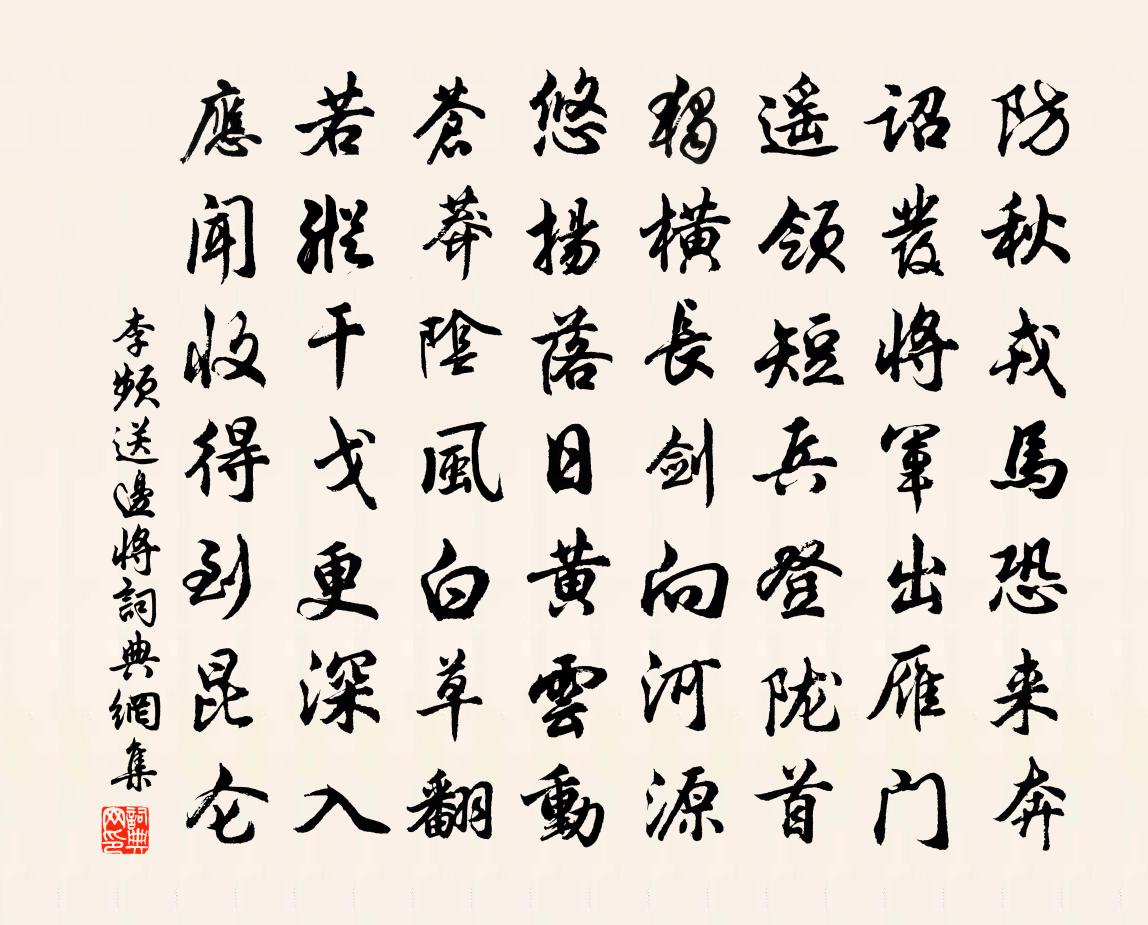 防秋戎馬恐来奔
詔發將軍出雁门
遥領短兵登陇首
獨橫長劍向河源
悠揚落日黄雲動
蒼莽陰風白草翻
若縱干戈更深入
應聞收得到昆仑
李頻送邊將詞典網集
詞典网印